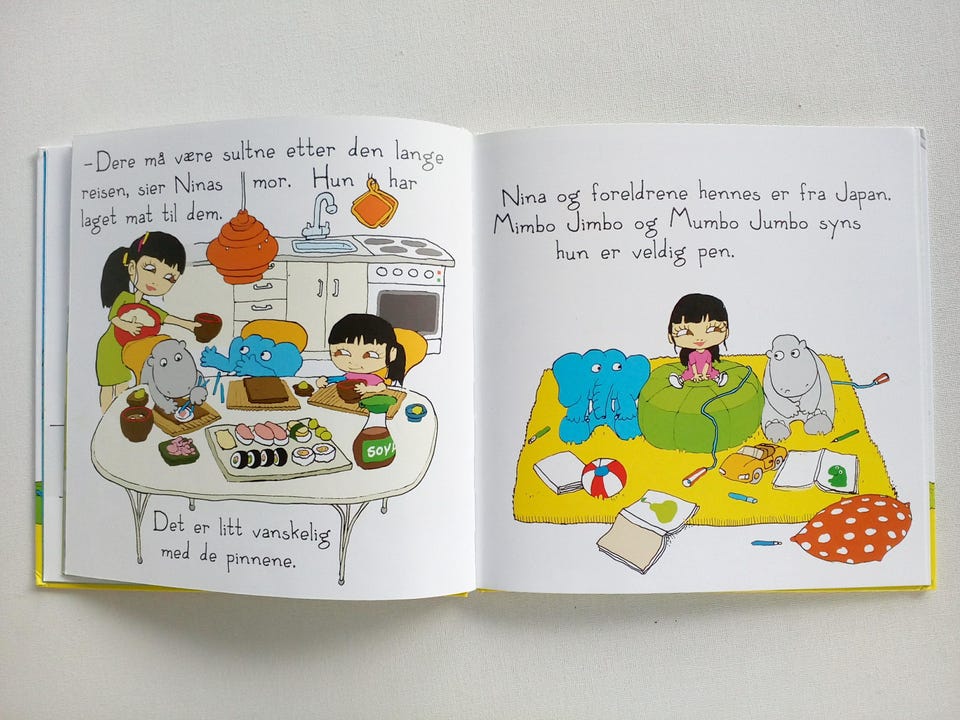 -Dere må være sultne etter den lange
reisen, sier Ninas mor. Hun har
laget mat til dem.
SOYA
Det er litt vanskelig
med de pinnene.
Nina og foreldrene hennes er fra Japan.
Mimbo Jimbo og Mumbo Jumbo syns
hun er veldig pen.